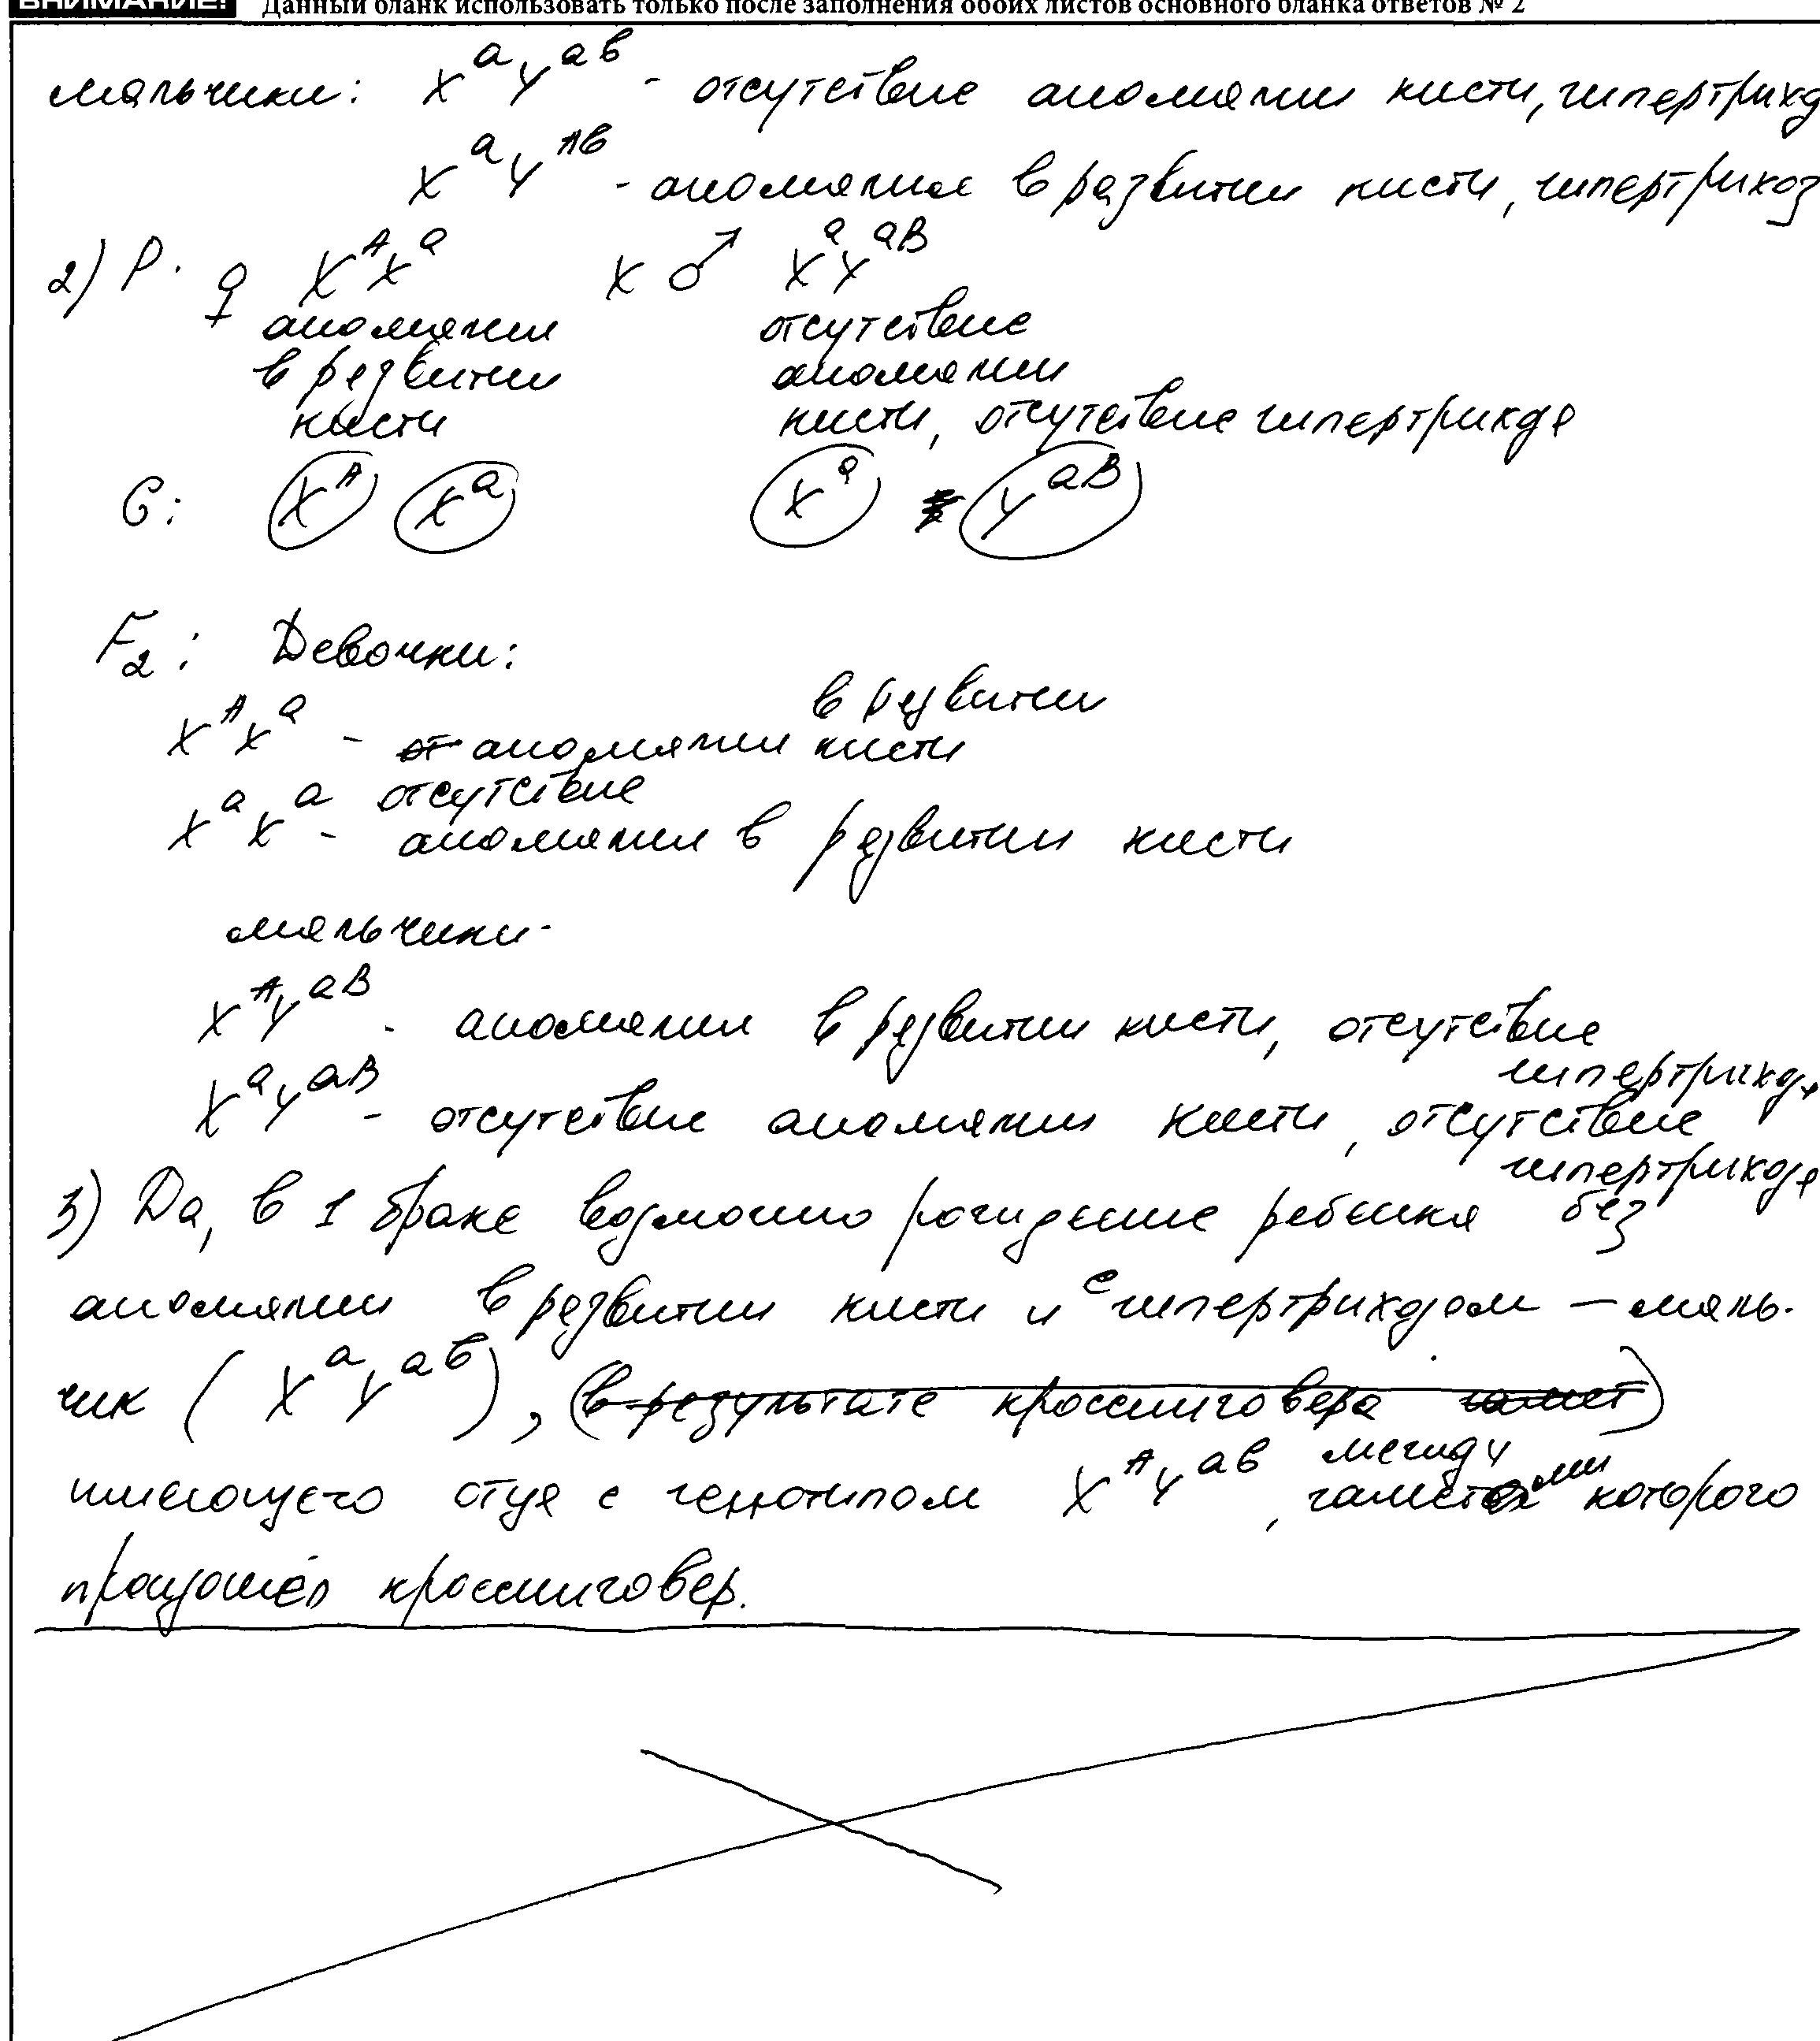 ВНИМАНИЕ! Данный бланк использовать только после заполнения обоих листов основного бланка ответов № 2
мальчики: X^a Y^ab - отсутствие аномалии кисти, гипертрихо
X^a Y^Ab - аномалия в развитии кисти, гипертрихоз
2) P. ♀ X^A X^a x ♂ X^a Y^aB
аномалии отсутствие
в развитии аномалии
кисти кисти, отсутствие гипертрихоза
G: X^A X^a X^a Y^aB
F2: Девочки:
в развитии
X^A X^a - от аномалии кисти
отсутствие
X^a X^a - аномалии в развитии кисти
мальчики-
X^A Y^aB - аномалии в развитии кисти, отсутствие
гипертрихоза
X^a Y^aB - отсутствие аномалии кисти, отсутствие
гипертрихоза
3) Да, в 1 браке возможно рождение ребёнка без
аномалии в развитии кисти и с гипертрихозом — маль-
чик ( X^a Y^ab ), (в результате кроссинговера гамет)
имеющего отца с генотипом X^A Y^ab, между гаметами которого
произошёл кроссинговер.